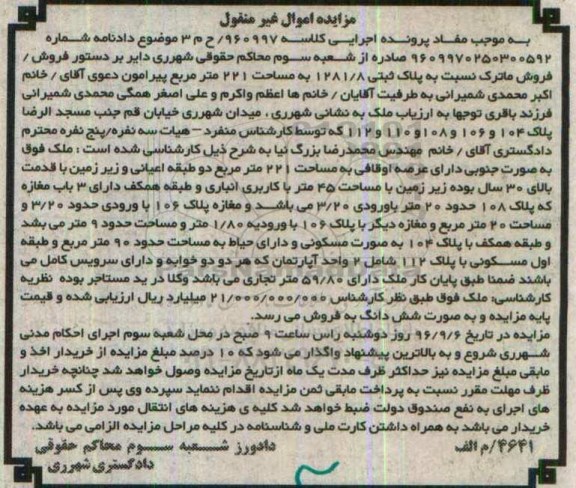 مزایده اموال غیر منقول
به موجب مفاد پرونده اجرایی کلاسه ۹۶۰۹۹۷/ح م ۳ موضوع دادنامه شماره
۹۶۰۹۹۷۰۲۵۰۳۰۰۵۹۲ صادره از شعبه سوم محاکم حقوقی شهرری دایر بر دستور فروش /
فروش ماترک نسبت به پلاک ثبتی ۱۲۸۱/۸ به مساحت ۲۲۱ متر مربع پیرامون دعوی آقای / خانم
اکبر محمدی شمیرانی به طرفیت آقایان / خانم ها اعظم واکرم و علی اصغر همگی محمدی شمیرانی
فرزند باقری توجها به ارزیاب ملک به نشانی شهرری ، میدان شهرری خیابان قم جنب مسجد الرضا
پلاک ۱۰۴ و ۱۰۶ و ۱۰۸ و ۱۱۰ و ۱۱۲ که توسط کارشناس منفرد-هیات سه نفره/پنج نفره محترم
دادگستری آقای / خانم مهندس محمدرضا بزرگ نیا به شرح ذیل کارشناسی شده است : ملک فوق
به صورت جنوبی دارای عرصه اوقافی به مساحت ۲۲۱ متر مربع دو طبقه اعیانی و زیر زمین با قدمت
بالای ۳۰ سال بوده زیر زمین با مساحت ۴۵ متر با کاربری انباری و طبقه همکف دارای ۳ باب مغازه
که پلاک ۱۰۸ حدود ۲۰ متر باورودی ۳/۲۰ می باشد و مغازه پلاک ۱۰۶ با ورودی حدود ۳/۲۰ و
مساحت ۲۰ متر مربع و مغازه دیگر با پلاک ۱۰۶ با ورودیه ۱/۸۰ متر و مساحت حدود ۹ متر می بشد
و طبقه همکف با پلاک ۱۰۴ به صورت مسکونی و دارای حیاط به مساحت حدود ۹۰ متر مربع و طبقه
اول مسکونی با پلاک ۱۱۲ شامل ۲ واحد آپارتمان که هر دو دو خوابه و دارای سرویس کامل می
باشند ضمنا طبق پایان کار ملک دارای ۵۹/۸۰ متر تجاری می باشد وکلا در ید مستاجر بوده نظریه
کارشناسی: ملک فوق طبق نظر کارشناس ۲۱/۰۰۰/۰۰۰/۰۰۰ میلیارد ریال ارزیابی شده و قیمت
پایه مزایده و به صورت شش دانگ به فروش می رسد.
مزایده در تاریخ ۹۶/۹/۶ روز دوشنبه راس ساعت ۹ صبح در محل شعبه سوم اجرای احکام مدنی
شهرری شروع و به بالاترین پیشنهاد واگذار می شود که ۱۰ درصد مبلغ مزایده از خریدار اخذ و
مابقی مبلغ مزایده نیز حداکثر ظرف مدت یک ماه ازتاریخ مزایده وصول خواهد شد چنانچه خریدار
ظرف مهلت مقرر نسبت به پرداخت مابقی ثمن مزایده اقدام ننماید سپرده وی پس از کسر هزینه
های اجرای به نفع صندوق دولت ضبط خواهد شد کلیه ی هزینه های انتقال مورد مزایده به عهده
خریدار می باشد به همراه داشتن کارت ملی و شناسنامه در کلیه مراحل مزایده الزامی می باشد.
۴۶۴۱/م الف دادورز شعبه سوم محاکم حقوقی
دادگستری شهرری